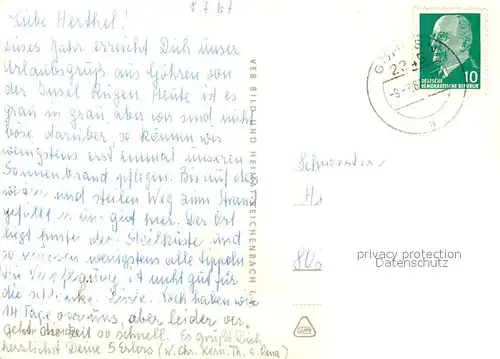 8.7.67
Liebe Herthel!
Dieses Jahr erreicht Dich unser
Urlaubsgruß aus Göhren von
der Insel Rügen. Heute ist es
grau in grau, aber wir sind nicht
böse darüber, so können wir
wenigstens erst einmal unseren
Sonnenbrand pflegen. Bis auf den
und steilen Weg zum Strand
gefällt es uns gut hier. Der Ort
liegt hinter der Steilküste, und
so müssen wenigstens alle tippeln.
Die Verpflegung ist nicht gut für
die schlanke Linie. Noch haben wir
14 Tage vor uns, aber leider ver-
geht die Zeit so schnell. Es grüßt Dich
herzlichst Deine 5 Erlers (W. Chr. Kern. Th. u. Oma)
VEB BILD UND HEIMAT REICHENBACH I. V.
DEUTSCHE
DEMOKRATISCHE REPUBLIK
10
Schwester
80
privacy protection
Datenschutz